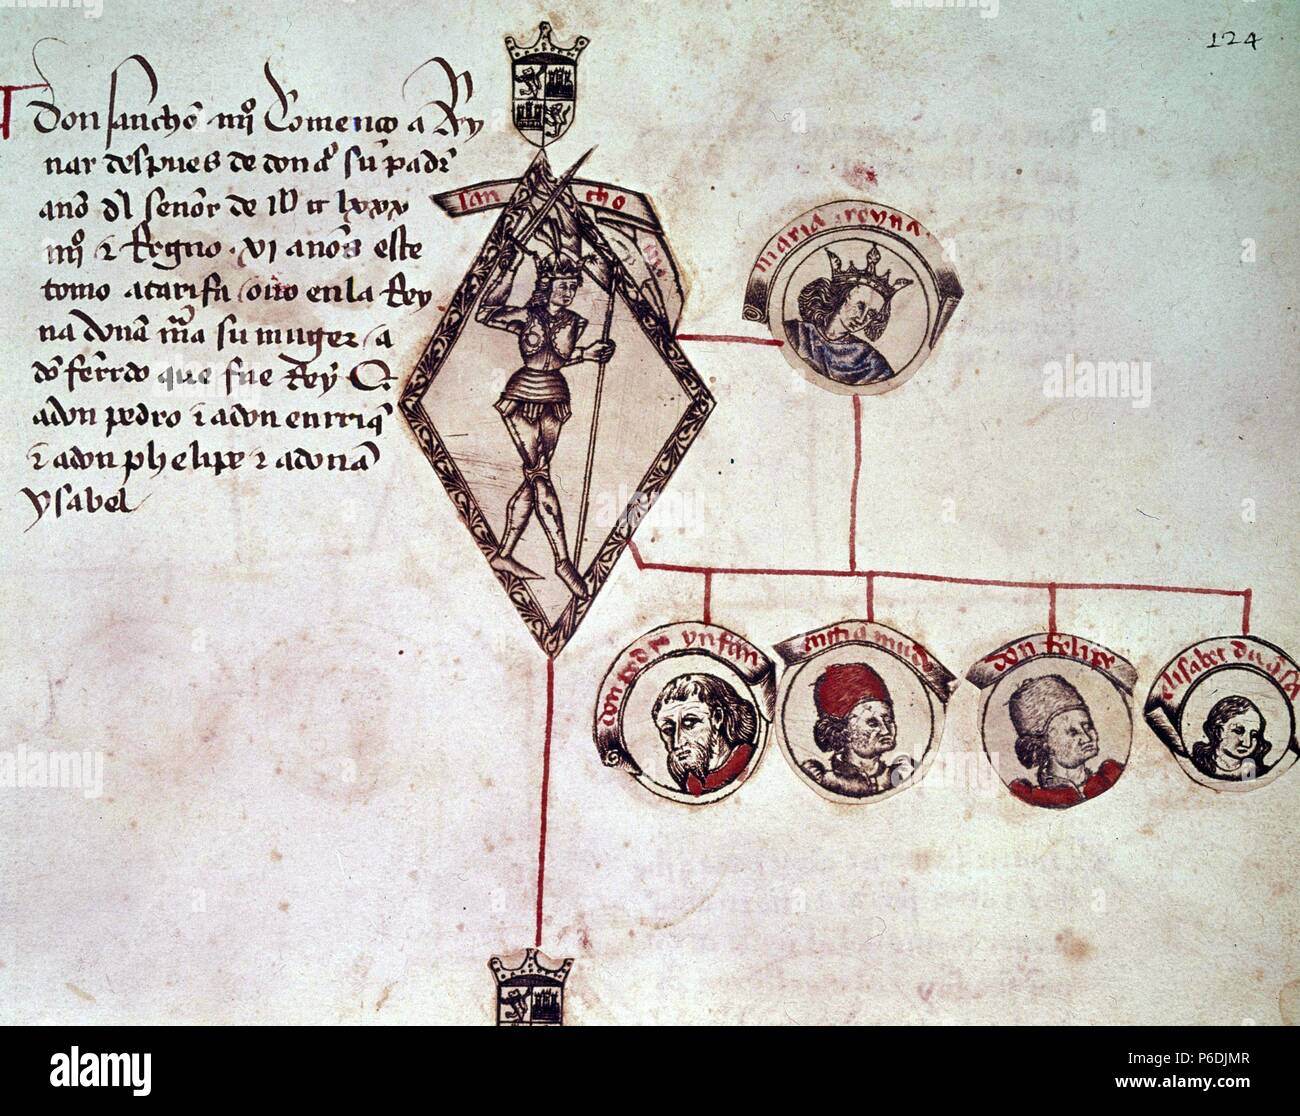 124
don sancho . iiijº Comenco a Rey
nar despues de don aº su padre
año dl señor de
iiijº τ Regno . xi años este
tomo a tarifa / ouo en la Rey
na doña mª su muger / a
do ferrdo que fue Rey
a don pedro τ a don enrriq
τ a don phelipe τ a doña
ysabel
san cho
maria . reyna .
don pedro ynfan
enrriq mudo
don felipe
elisabet
alamy
P6DJMR
www.alamy.com